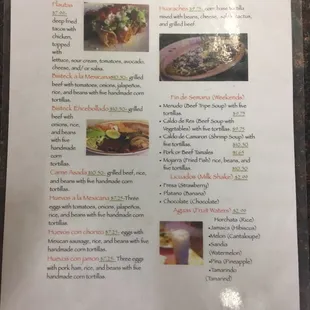 Flautas
$7.99- deep
fried tacos
with
chicken,
topped
with
lettuce, sour cream, tomatoes, avocado,
cheese, and/or salsa.
Bisteck a la Mexicana $10.50- grilled
beef with tomatoes, onions, jalapeños,
rice, and beans with five handmade corn
tortillas.
Bisteck Encebollado $10.50- grilled
beef with
onions, rice,
and beans
with five
handmade
corn
tortillas.
Carne Asada $10.50- grilled beef, rice,
and beans with five handmade corn
tortillas.
Huevos a la Mexicana $7.25- Three
eggs with tomatoes, onions, jalapeños,
rice, and beans with five handmade corn
tortillas.
Huevos con chorizo $7.25- eggs with
Mexican sausage, rice, and beans with five
handmade corn tortillas.
Huevos con jamon $7.25- Three eggs
with pork ham, rice, and beans with five
handmade corn tortillas.
Huaraches $8.75- corn base tortilla
mixed with beans, cheese, cactus,
and grilled beef.
Fin de Semana (Weekends)
• Menudo (Beef Tripe Soup) with five
tortillas
• Caldo de Res (Beef Soup with
Vegetables) with five tortillas
• Caldo de Camaron (Shrimp Soup) with
five tortillas $10.50
• Pork or Beef Tamales
• Mojarra (Fried Fish) rice, beans, and
five tortillas $10.50
Licuados (Milk Shake) $3.99
• Fresa (Strawberry)
• Platano (Banana)
• Chocolate (Chocolate)
Aguas (Fruit Waters) $2.99
Horchata (Rice)
• Jamaica (Hibiscus)
• Melon (Cantaloupe)
• Sandia
(Watermelon)
• Pina (Pineapple)
• Tamarindo
(Tamarind)